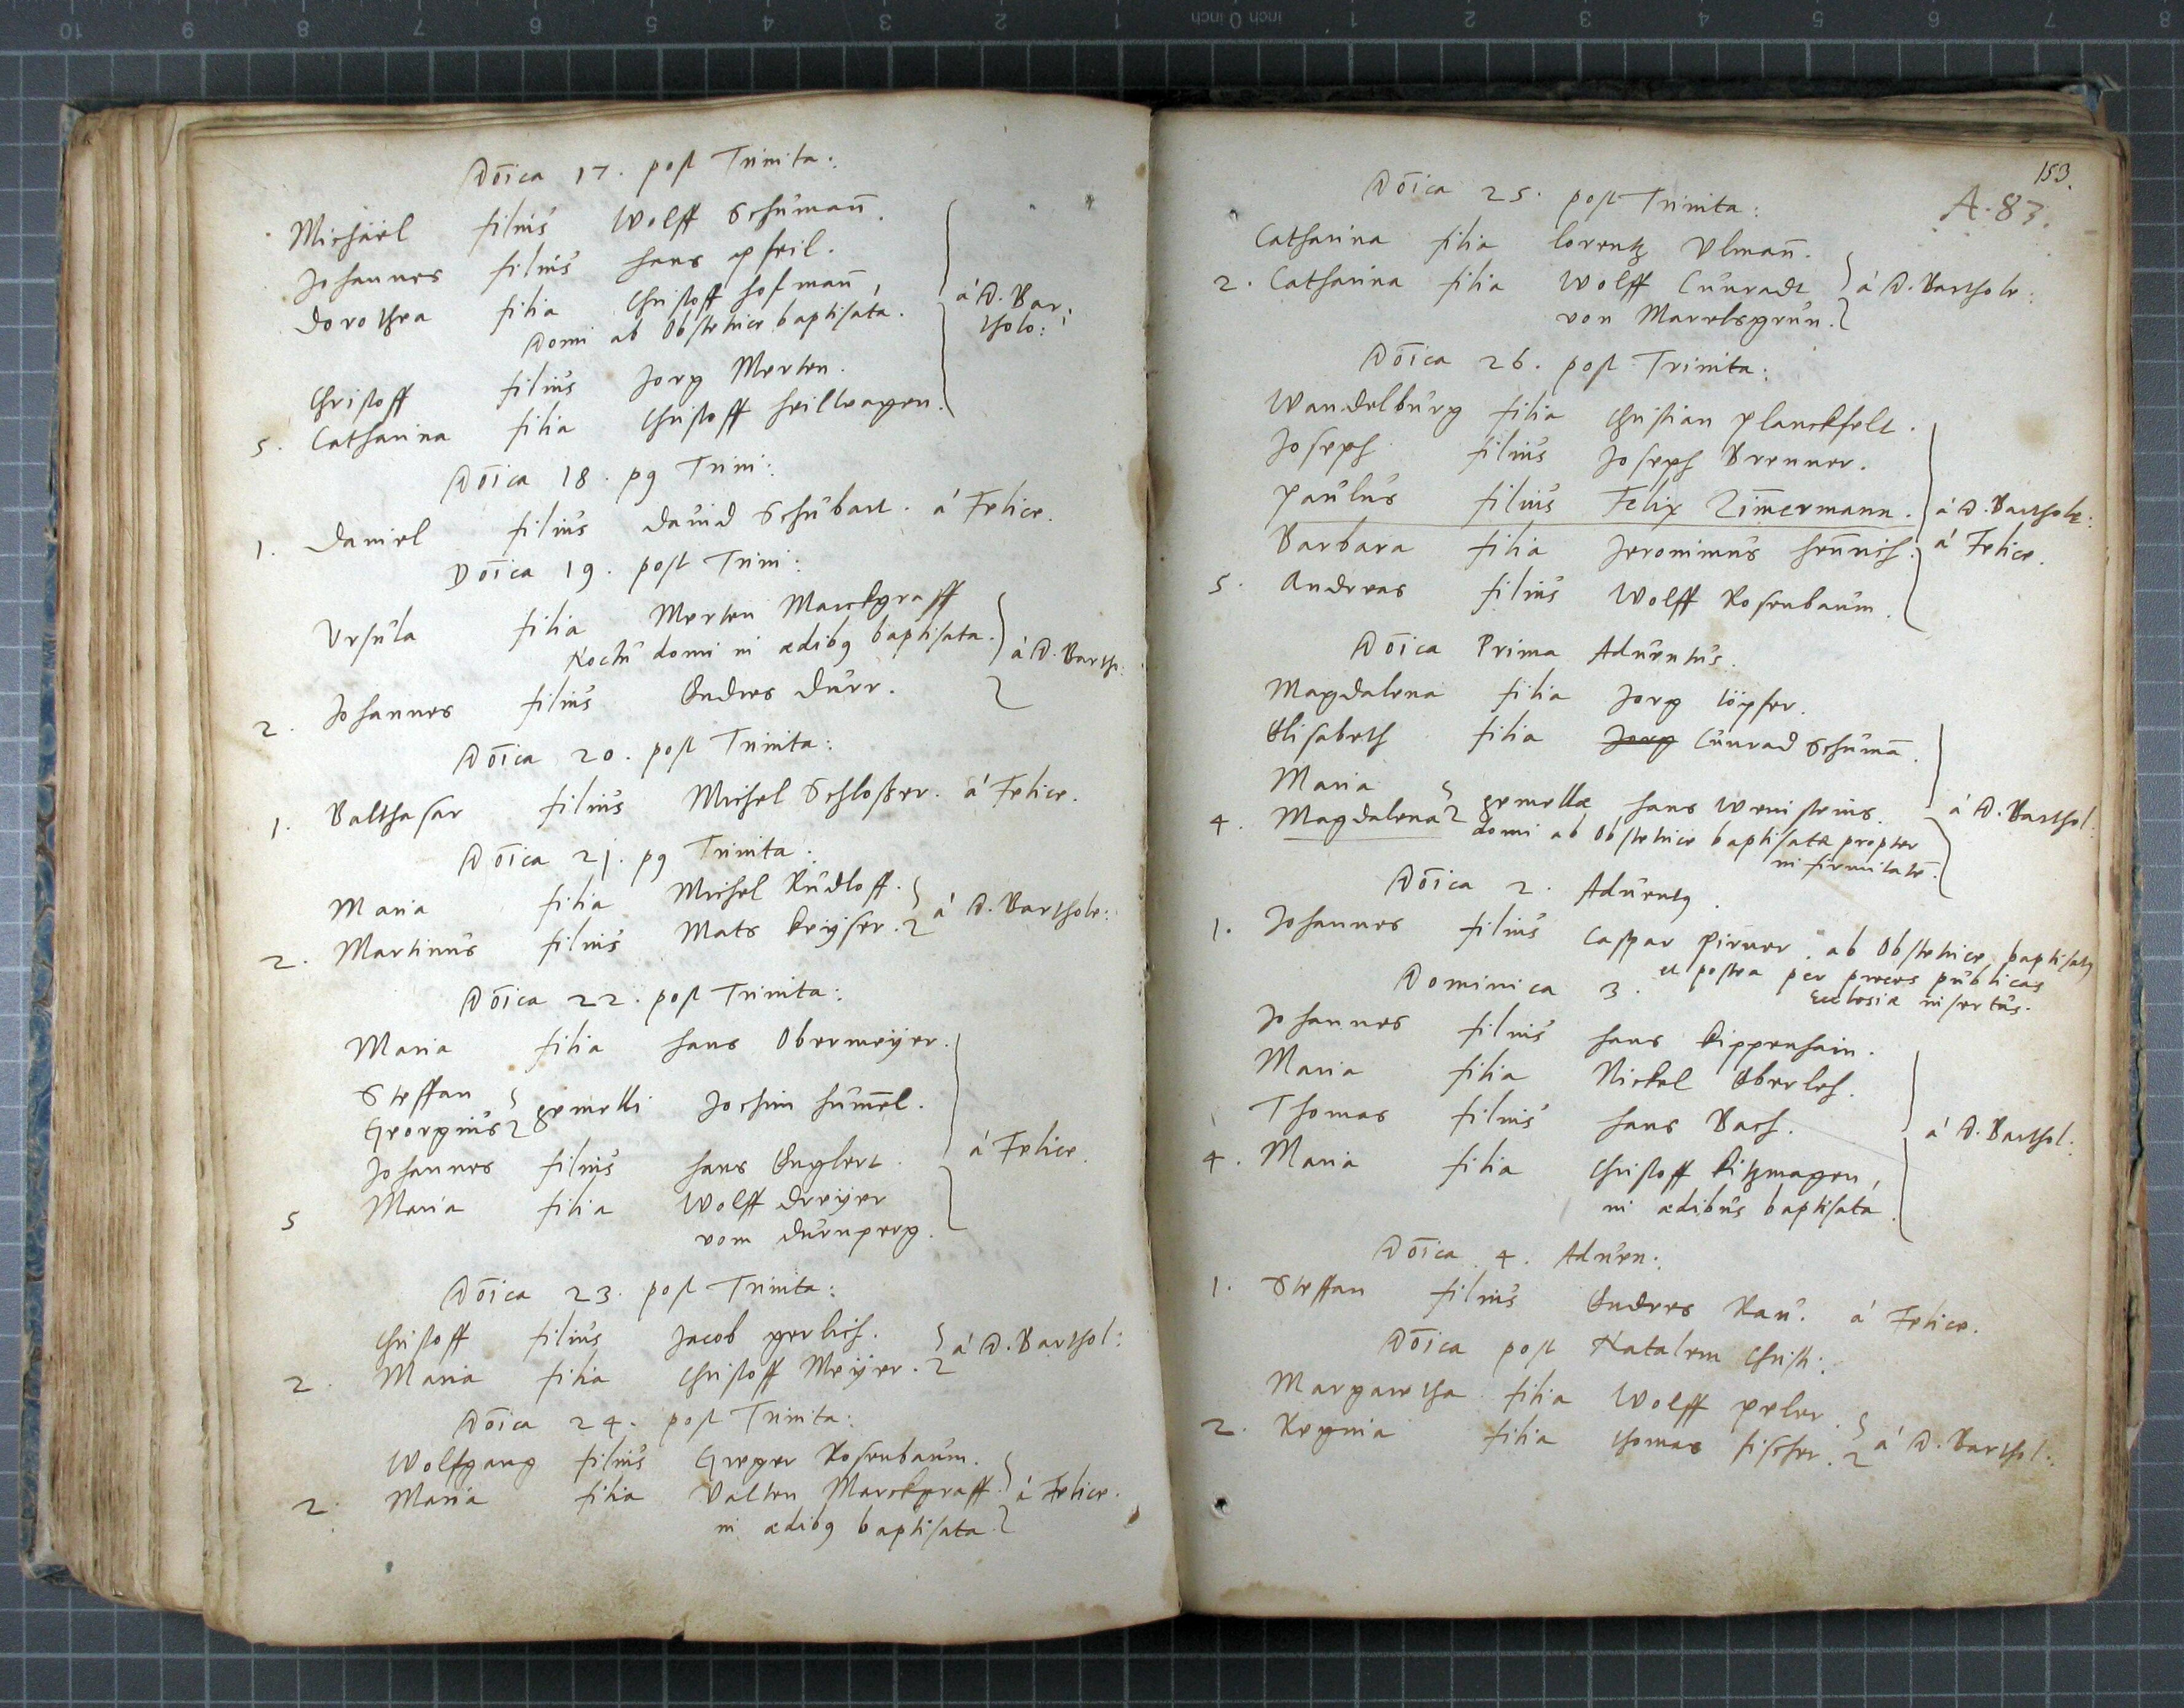 Dōica 17. post Trinita:
Michael filius Wolff Schuman̄.
Johannes filius Hans Pfeil.
Dorothea filia Christoff Hofman̄,
Domi ab Obstetrice baptisata.
à D. Bar:
tholo:
Christoff filius Jorg Merten.
5. Catharina filia Christoff Heillwagen.
Dōica 18. p9 Trini:
1. Daniel filius David Schubart. à Felice.
Dōica 19. post Trini:
Ursula filia Merten Marckgraff
Noctu domi in ædib9 baptisata.
à D. Barth:
2. Johannes filius Endres Durr.
Dōica 20. post Trinita:
1. Balthasar filius Michel Schlosser. à Felice.
Dōica 21. p9 Trinita:
Maria filia Michel Rudloff.
2. Martinus filius Mats Keyser. à D. Bartole:
Dōica 22. post Trinita:
Maria filia Hans Obermeyer.
Steffan
Georgius gemelli Jochim Hum̄el.
Johannes filius Hans Englert. à Felice.
5 Maria filia Wolff Dreyer
vom Durnperg.
Dōica 23. post Trinita:
Christoff filius Jacob Gerlich.
2. Maria filia Christoff Meyer. à D. Barthol:
Dōica 24. post Trinita:
Wolfgang filius Greger Rosenbaum.
2. Maria filia Valten Marckgraff. à Felice.
in ædib9 baptisata.
153.
A. 83.
Dōica 25. post Trinita:
Catharina filia Lorentz Ulman̄.
2. Catharina filia Wolff Cunradt à D. Bartole:
von Marelsgrun.
Dōica 26. post Trinita:
Wandelburg filia Christian Planckfelt.
Joseph filius Joseph Brenner.
Paulus filius Felix Zim̄ermann. à D. Bartole:
Barbara filia Jeronimus Hen̄ich. à Felice.
5. Andreas filius Wolff Rosenbaum.
Dōica Prima Adventus.
Magdalena filia Jorg Töpfer.
Elisabeth filia Jorg Cunrad Schumā.
Maria
4. Magdalena gemellæ Hans Weinsteins. à D. Barthol:
domi ab Obstetrice baptisatæ propter
infirmitatē.
Dōica 2. Advent9.
1. Johannes filius Caspar Pirner. ab Obstetrice baptisat9
et postea per preces publicas
Ecclesiæ insertus.
Dominica 3.
Johannes filius Hans Kippenhain.
Maria filia Nickel Eberleh.
Thomas filius Hans Bach.
à D. Barthol:
4. Maria filia Christoff Kitzmagen,
in ædibus baptisata.
Dōica 4. Adven:
1. Steffan filius Endres Rau. à Felice.
Dōica post Natalem Christi:
Margaretha filia Wolff Peler.
2. Regina filia Thomas Fischer. à D. Barthol: